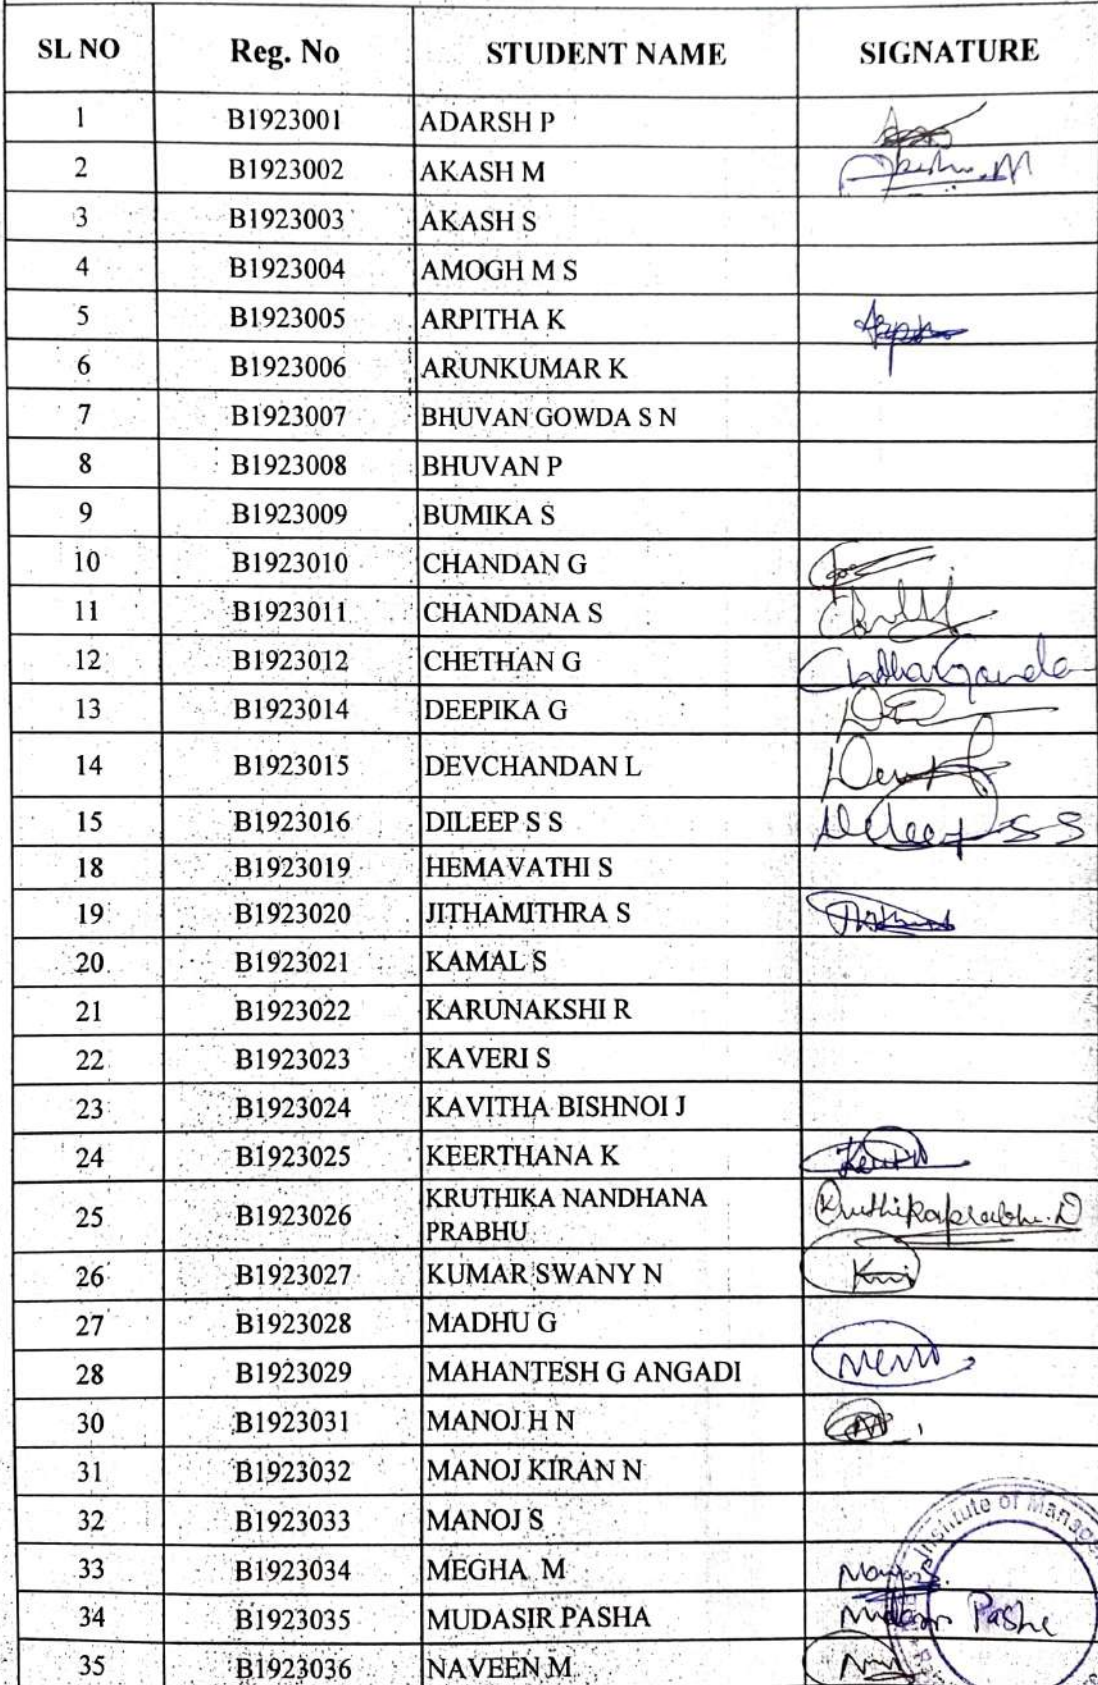 SL NO Reg. No STUDENT NAME SIGNATURE
1 B1923001 ADARSH P
2 B1923002 AKASH M
3 B1923003 AKASH S
4 B1923004 AMOGH M S
5 B1923005 ARPITHA K
6 B1923006 ARUNKUMAR K
7 B1923007 BHUVAN GOWDA S N
8 B1923008 BHUVAN P
9 B1923009 BUMIKA S
10 B1923010 CHANDAN G
11 B1923011 CHANDANA S
12 B1923012 CHETHAN G
13 B1923014 DEEPIKA G
14 B1923015 DEVCHANDAN L
15 B1923016 DILEEP S S Dileep S S
18 B1923019 HEMAVATHI S
19 B1923020 JITHAMITHRA S
20 B1923021 KAMAL S
21 B1923022 KARUNAKSHI R
22 B1923023 KAVERI S
23 B1923024 KAVITHA BISHNOI J
24 B1923025 KEERTHANA K
25 B1923026 KRUTHIKA NANDHANA
PRABHU Kruthikaprabhu.N
26 B1923027 KUMAR SWANY N
27 B1923028 MADHU G
28 B1923029 MAHANTESH G ANGADI
30 B1923031 MANOJ H N
31 B1923032 MANOJ KIRAN N
32 B1923033 MANOJ S
Institute of Manage
33 B1923034 MEGHA M
34 B1923035 MUDASIR PASHA Mudasir Pasha
35 B1923036 NAVEEN M